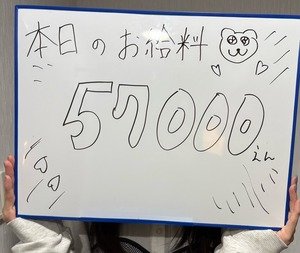 本日のお給料
57000
えん